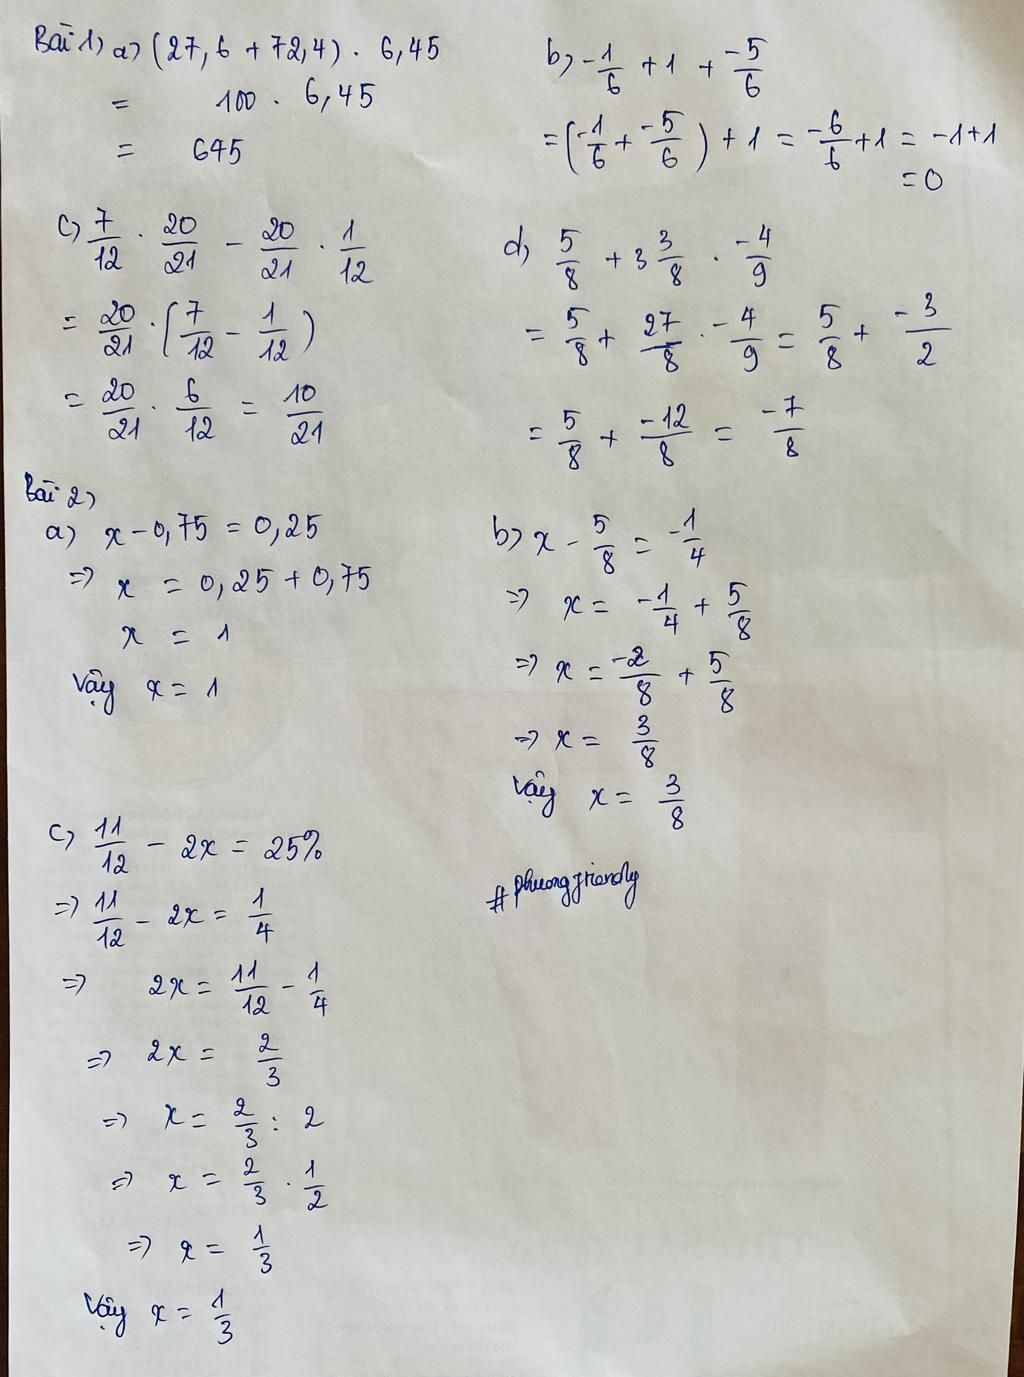 Bài 1) a) (27,6 + 72,4) . 6,45
= 100 . 6,45
= 645
b) -1/6 + 1 + -5/6
= (-1/6 + -5/6) + 1 = -6/6 + 1 = -1+1
= 0
c) 7/12 . 20/21 - 20/21 . 1/12
= 20/21 . (7/12 - 1/12)
= 20/21 . 6/12 = 10/21
d) 5/8 + 3 3/8 . -4/9
= 5/8 + 27/8 . -4/9 = 5/8 + -3/2
= 5/8 + -12/8 = -7/8
Bài 2)
a) x - 0,75 = 0,25
=> x = 0,25 + 0,75
x = 1
Vậy x = 1
b) x - 5/8 = -1/4
=> x = -1/4 + 5/8
=> x = -2/8 + 5/8
=> x = 3/8
Vậy x = 3/8
c) 11/12 - 2x = 25%
=> 11/12 - 2x = 1/4
=> 2x = 11/12 - 1/4
=> 2x = 2/3
=> x = 2/3 : 2
=> x = 2/3 . 1/2
=> x = 1/3
Vậy x = 1/3
#phuongfriendly